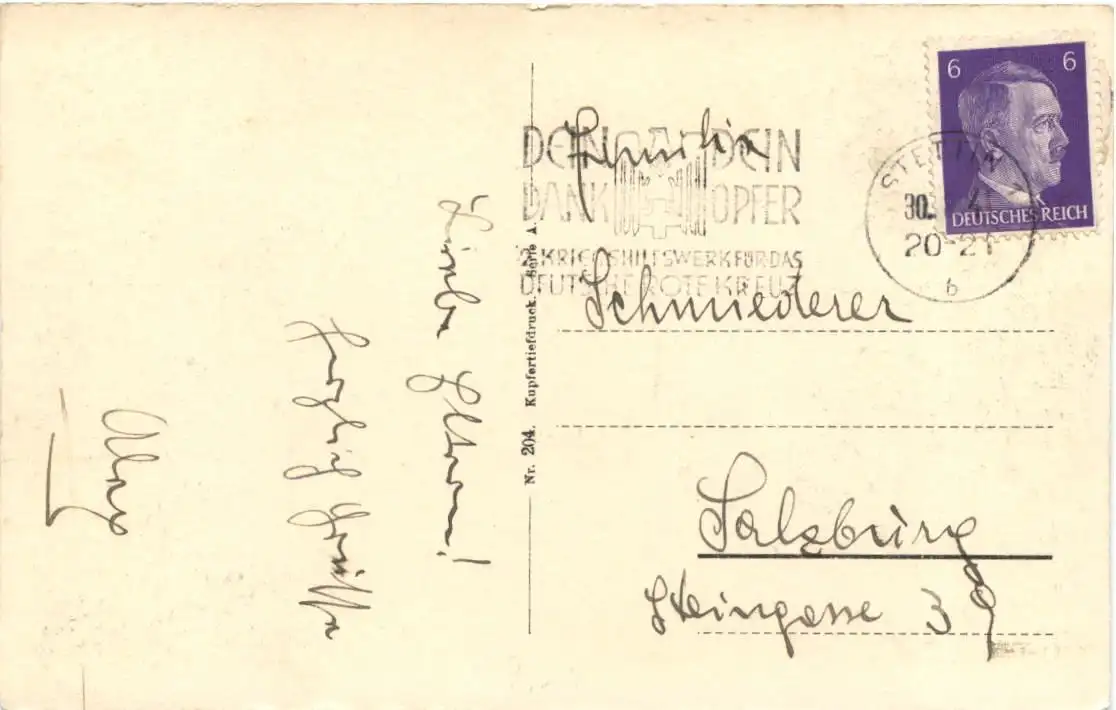 Liebe Eltern!
Herzlich Grüße
Nr. 204. Kupfertiefdruck. Serie A.
DEIN DANK DEIN OPFER
2. KRIEGSHILFSWERK FÜR DAS
DEUTSCHE ROTE KREUZ
6 6
DEUTSCHES REICH
STETTIN
30.
20-21
b
Familie
Schmiederer
Salzburg
Steingasse 39